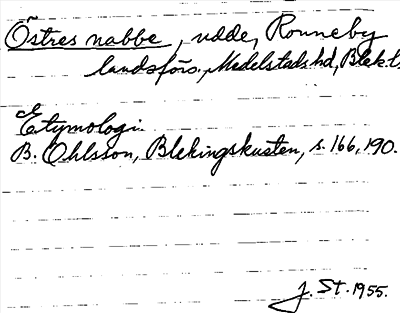 Östres nabbe, udde, Ronneby
landsförs., Medelstads hd, Blek.l.
Etymologi.
B. Ohlsson, Blekingskusten, s. 166, 190.
J. St. 1955.